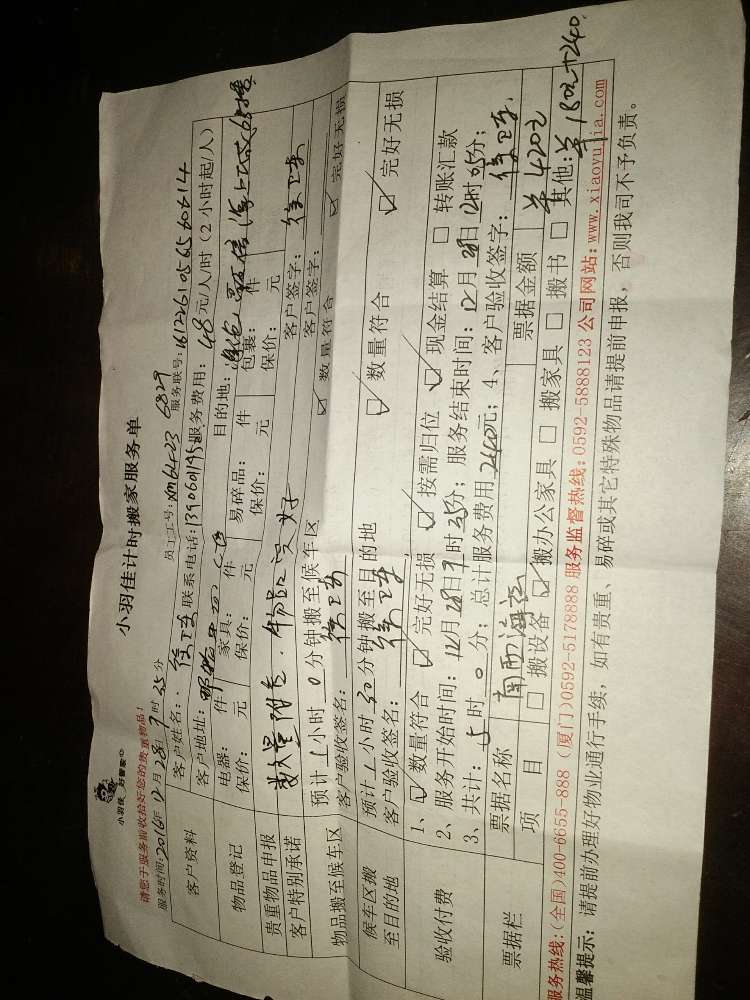 小羽佳 好管家
小羽佳计时搬家服务单
请您于服务前收拾好您的贵重物品!
服务时间:2016年12月28日9时25分 员工工号:xm6423 6829 服务联号:1612261056560614
客户资料
客户姓名: 联系电话:1390601195 服务费用:48元/人/时(2小时起/人)
客户地址: 目的地:
物品登记
电器: 件 家具: 件 易碎品: 件 包裹: 件
保价: 元 保价: 元 保价: 元 保价: 元
贵重物品申报
客户特别承诺
客户签字:
物品搬至候车区
预计1小时0分钟搬至候车区 客户签字:
客户验收签名: ☑数量符合 ☑完好无损
候车区搬至目的地
预计1小时30分钟搬至目的地
客户验收签名: ☑数量符合 ☑完好无损
验收付费
1、☑数量符合 ☑完好无损 ☑按需归位 ☑现金结算 □转账汇款
2、服务开始时间:12月28日9时25分;服务结束时间:12月28日 时 分;
3、共计:5时0分;总计服务费用2640元;4、客户验收签字:
票据栏
票据名称 票据金额 420元
项目 □搬设备 ☑搬办公家具 □搬家具 □搬书 □其他: 180+240
服务热线:(全国)400-6655-888 (厦门)0592-5178888 服务监督热线:0592-5888123 公司网站:www.xiaoyujia.com
温馨提示:请提前办理好物业通行手续,如有贵重、易碎或其它特殊物品请提前申报,否则我司不予负责。